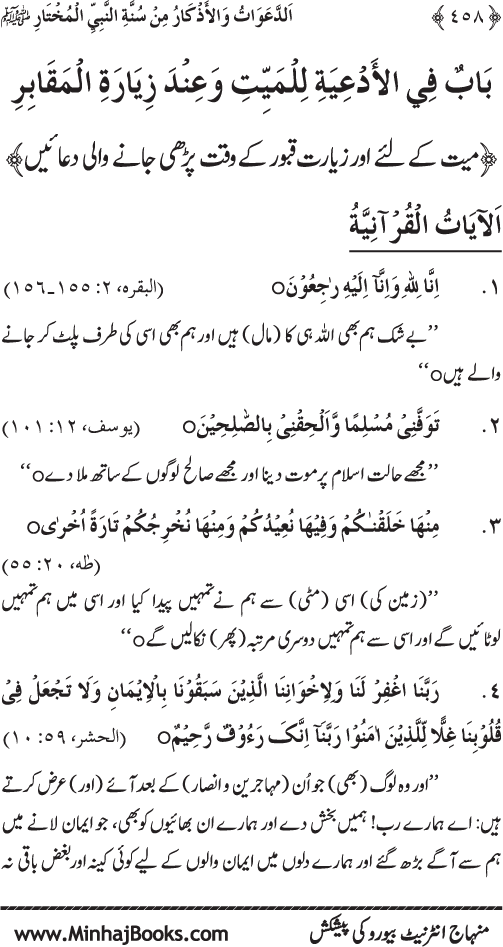 ﴿٤٥٨﴾ اَلدَّعَوَاتُ وَالْأَذْكَارُ مِنْ سُنَّةِ النَّبِيِّ الْمُخْتَارِ ﷺ
بَابٌ فِي الْأَدْعِيَةِ لِلْمَيِّتِ وَعِنْدَ زِيَارَةِ الْمَقَابِرِ
﴿میت کے لئے اور زیارت قبور کے وقت پڑھی جانے والی دعائیں﴾
اَلْآيَاتُ الْقُرْآنِيَّةُ
١. اِنَّا لِلّٰهِ وَاِنَّآ اِلَيْهِ رٰجِعُوْنَo (البقره، ٢: ١٥٥-١٥٦)
’’بے شک ہم بھی اللہ ہی کا (مال) ہیں اور ہم بھی اسی کی طرف پلٹ کر جانے
والے ہیںo‘‘
٢. تَوَفَّنِيْ مُسْلِمًا وَّاَلْحِقْنِيْ بِالصّٰلِحِيْنَo (يوسف، ١٢: ١٠١)
’’مجھے حالت اسلام پر موت دینا اور مجھے صالح لوگوں کے ساتھ ملا دےo‘‘
٣. مِنْهَا خَلَقْنٰـكُمْ وَفِيْهَا نُعِيْدُكُمْ وَمِنْهَا نُخْرِجُكُمْ تَارَةً اُخْرٰىo
(طٰه، ٢٠: ٥٥)
’’(زمین کی) اسی (مٹی) سے ہم نے تمہیں پیدا کیا اور اسی میں ہم تمہیں
لوٹائیں گے اور اسی سے ہم تمہیں دوسری مرتبہ (پھر) نکالیں گےo‘‘
٤. رَبَّنَا اغْفِرْ لَنَا وَلِاِخْوَانِنَا الَّذِيْنَ سَبَقُوْنَا بِالْاِيْمَانِ وَلَا تَجْعَلْ فِيْ
قُلُوْبِنَا غِلًّا لِّلَّذِيْنَ اٰمَنُوْا رَبَّنَآ اِنَّکَ رَءُوْفٌ رَّحِيْمٌo (الحشر، ٥٩: ١٠)
’’اور وہ لوگ (بھی) جو اُن (مہاجرین و انصار) کے بعد آئے (اور) عرض کرتے
ہیں: اے ہمارے رب! ہمیں بخش دے اور ہمارے ان بھائیوں کو بھی، جو ایمان لانے میں
ہم سے آگے بڑھ گئے اور ہمارے دلوں میں ایمان والوں کے لیے کوئی کینہ اور بغض باقی نہ
منہاج انٹرنیٹ بیورو کی پیشکش www.MinhajBooks.com